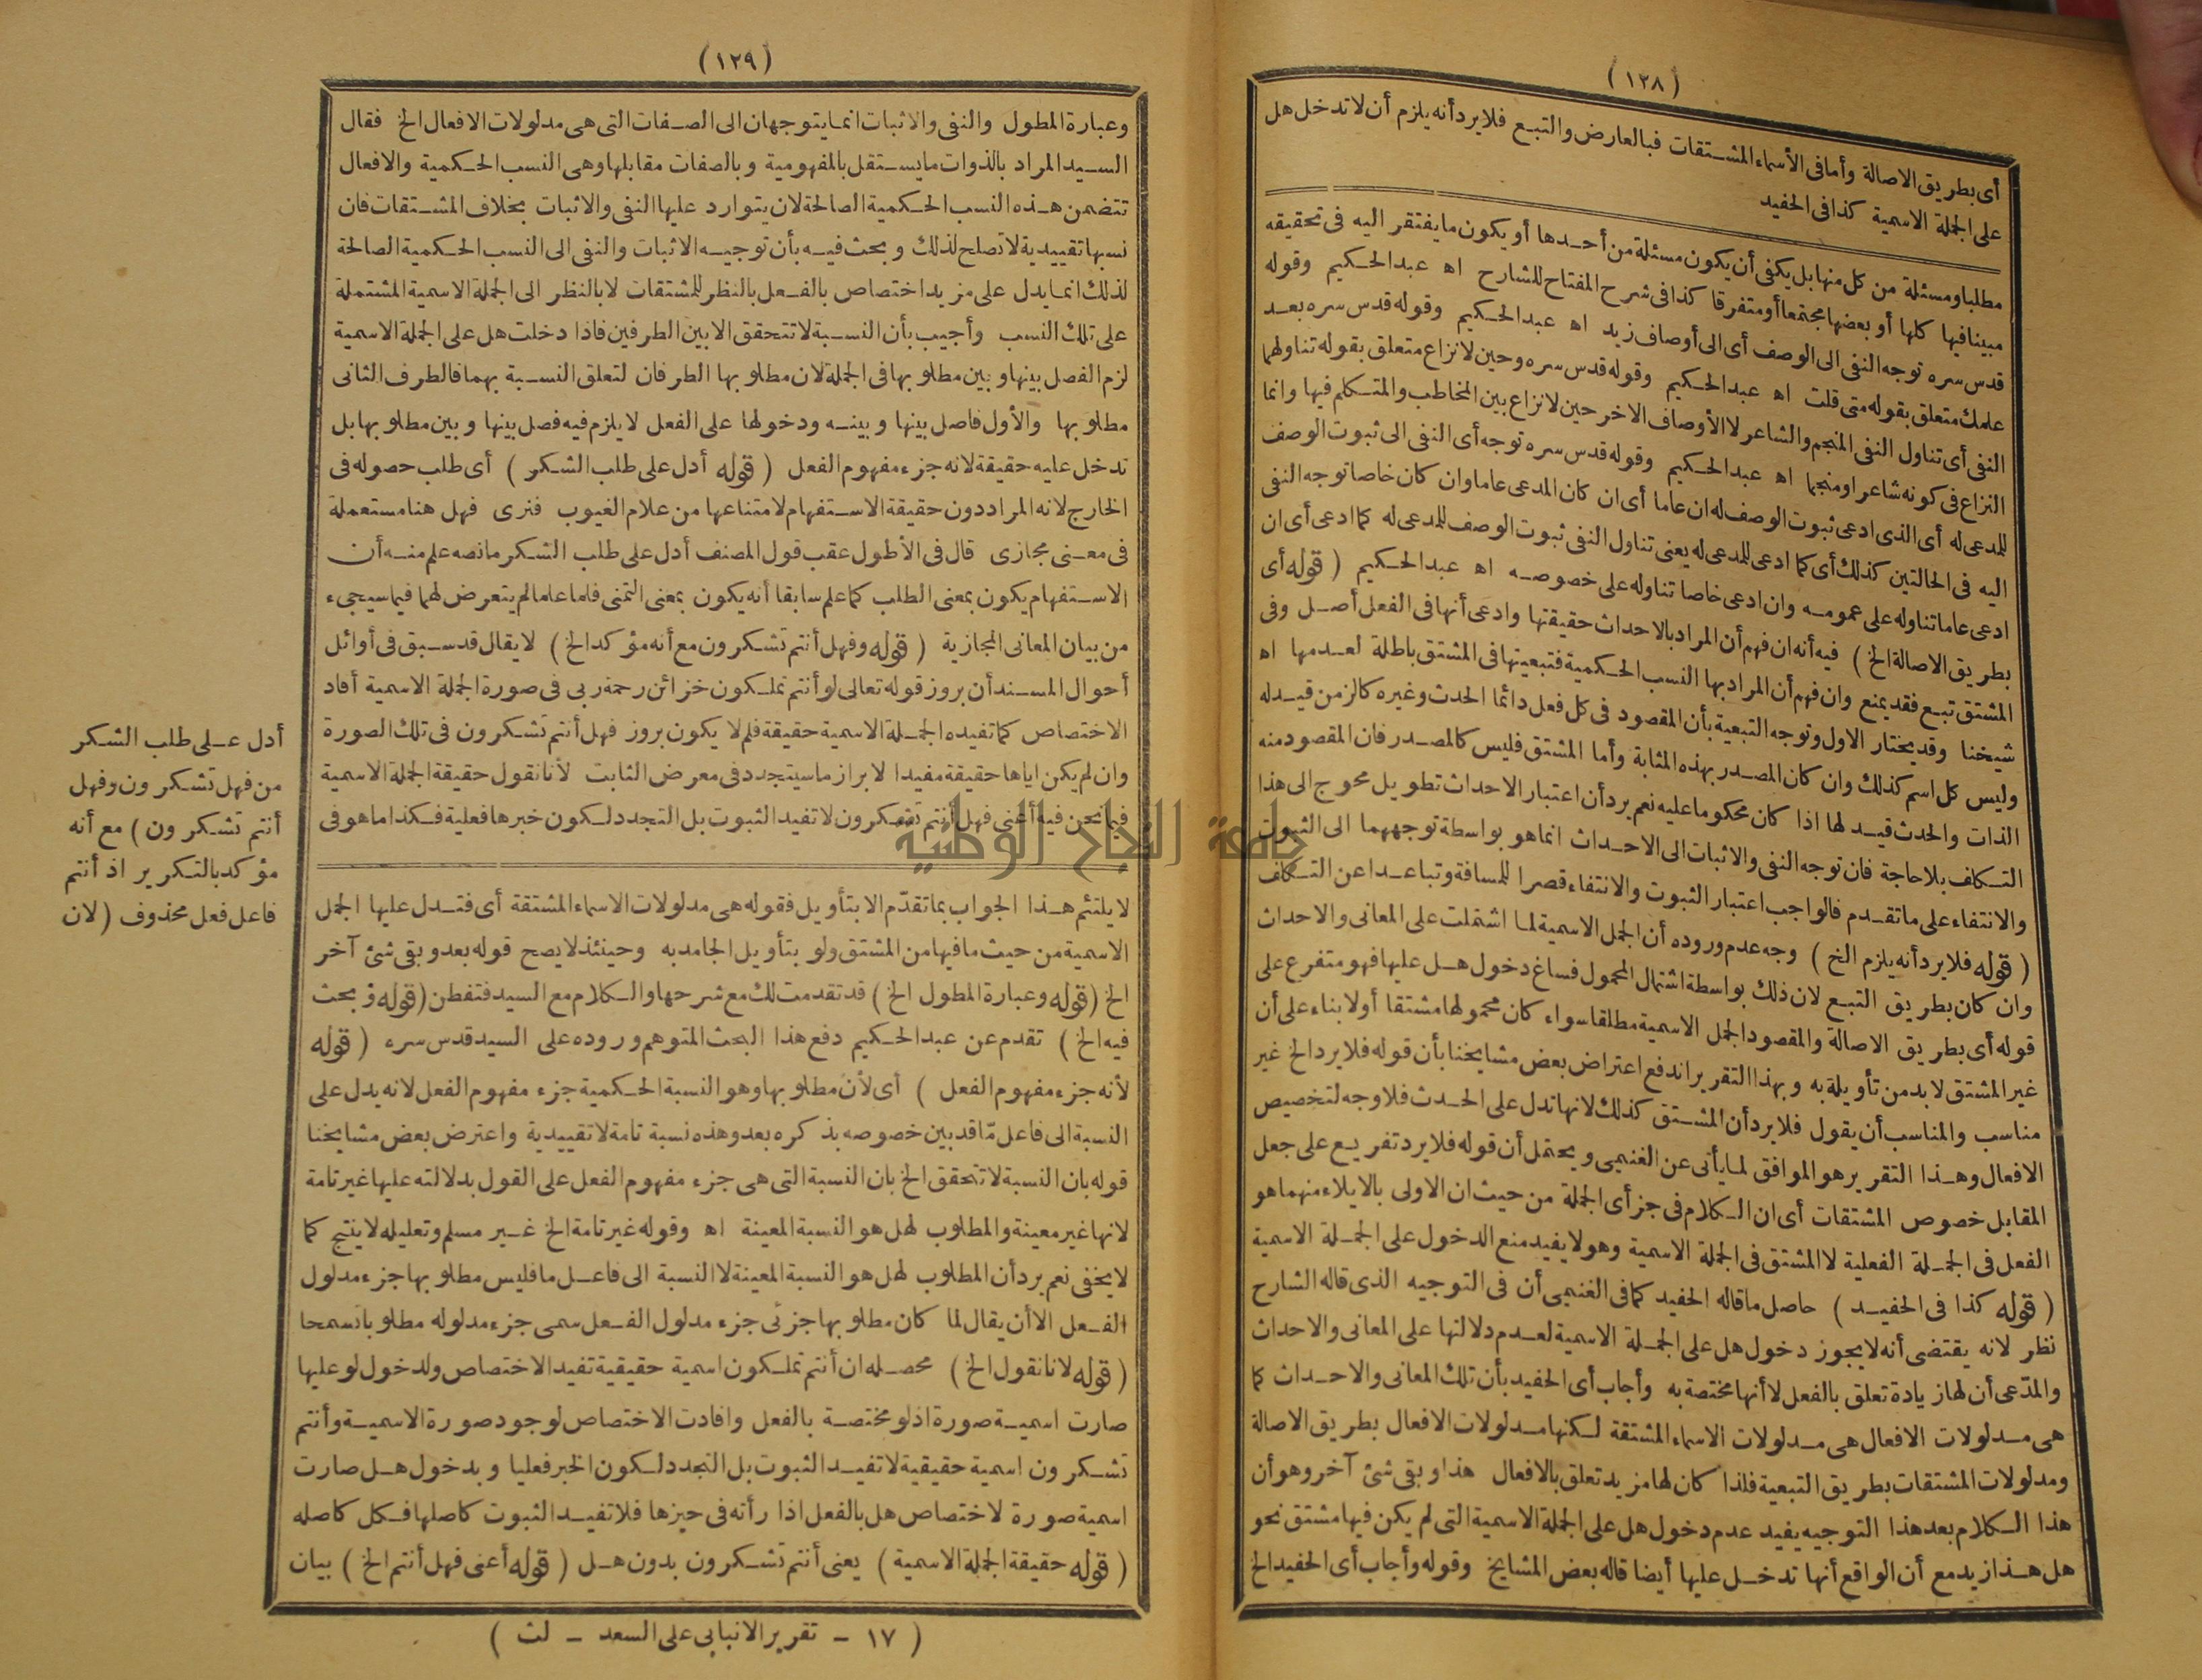 (١٢٨)
أى بطريق الاصالة وأما فى الأسماء المشتقات فبالعارض والتبع فلا يرد أنه يلزم أن لا تدخل هل
على الجملة الاسمية كذا فى الحفيد
مطلبا ومسئلة من كل منها بل يكفى أن يكون مسئلة من أحدها أو يكون ما يفتقر اليه فى تحقيقه
مبينا فيها كلها أو بعضها مجتمعا أو متفرقا كذا فى شرح المفتاح للشارح اه عبد الحكيم وقوله
قدس سره توجه النفى الى الوصف أى الى أوصاف زيد اه عبد الحكيم وقوله قدس سره بعد
علمك متعلق بقوله متى قلت اه عبد الحكيم وقوله قدس سره وحين لا نزاع متعلق بقوله تناولهما
النفى أى تناول النفى المنجم والشاعر لا الأوصاف الاخر حين لا نزاع بين المخاطب والمتكلم فيها وانما
النزاع فى كونه شاعرا ومنجما اه عبد الحكيم وقوله قدس سره توجه أى النفى الى ثبوت الوصف
للمدعى له أى الذى ادعى ثبوت الوصف له ان عاما أى ان كان المدعى عاما وان كان خاصا توجه النفى
اليه فى الحالتين كذلك أى كما ادعى للمدعى له يعنى تناول النفى ثبوت الوصف للمدعى له كما ادعى أى ان
ادعى عاما تناوله على عمومه وان ادعى خاصا تناوله على خصوصه اه عبد الحكيم (قوله أى
بطريق الاصالة الخ) فيه أنه ان فهم أن المراد بالاحداث حقيقتها وادعى أنها فى الفعل أصل وفى
المشتق تبع فقد يمنع وان فهم أن المراد بها النسب الحكمية فتبعيتها فى المشتق باطلة لعدمها اه
شيخنا وقد يختار الاول وتوجه التبعية بأن المقصود فى كل فعل دائما الحدث وغيره كالزمن قيد له
وليس كل اسم كذلك وان كان المصدر بهذه المثابة وأما المشتق فليس كالمصدر فان المقصود منه
الذات والحدث قيد لها اذا كان محكوما عليه نعم يرد أن اعتبار الاحداث تطويل محوج الى هذا
التكلف بلا حاجة فان توجه النفى والاثبات الى الاحداث انما هو بواسطة توجههما الى الثبوت
والانتفاء على ما تقدم فالواجب اعتبار الثبوت والانتفاء قصرا للمسافة وتباعدا عن التكلف
(قوله فلا يرد أنه يلزم الخ) وجه عدم وروده أن الجمل الاسمية لما اشتملت على المعانى والاحداث
وان كان بطريق التبع لان ذلك بواسطة اشتمال المحمول فساغ دخول هل عليها فهو متفرع على
قوله أى بطريق الاصالة والمقصود الجمل الاسمية مطلقا سواء كان محمولها مشتقا أولا بناء على أن
غير المشتق لابد من تأويله به وبهذا التقرير اندفع اعتراض بعض مشايخنا بأن قوله فلا يرد الخ غير
مناسب والمناسب أن يقول فلا يرد أن المشتق كذلك لانها تدل على الحدث فلا وجه لتخصيص
الافعال وهذا التقرير هو الموافق لما يأتى عن الغنيمى ويحتمل أن قوله فلا يرد تفريع على جعل
المقابل خصوص المشتقات أى ان الكلام فى جزأى الجملة من حيث ان الاولى بالايلاء منهما هو
الفعل فى الجملة الفعلية لا المشتق فى الجملة الاسمية وهو لا يفيد منع الدخول على الجملة الاسمية
(قوله كذا فى الحفيد) حاصل ما قاله الحفيد كما فى الغنيمى أن فى التوجيه الذى قاله الشارح
نظر لانه يقتضى أنه لا يجوز دخول هل على الجملة الاسمية لعدم دلالتها على المعانى والاحداث
والمدّعى أن لها زيادة تعلق بالفعل لا أنها مختصة به وأجاب أى الحفيد بأن تلك المعانى والاحداث كما
هى مدلولات الافعال هى مدلولات الاسماء المشتقة لكنها مدلولات الافعال بطريق الاصالة
ومدلولات المشتقات بطريق التبعية فلذا كان لها مزيد تعلق بالافعال هذا وبقى شئ آخر وهو أن
هذا الكلام بعد هذا التوجيه يفيد عدم دخول هل على الجملة الاسمية التى لم يكن فيها مشتق نحو
هل هذا زيد مع أن الواقع أنها تدخل عليها أيضا قاله بعض المشايخ وقوله وأجاب أى الحفيد الخ
(١٢٩)
وعبارة المطول والنفى والاثبات انما يتوجهان الى الصفات التى هى مدلولات الافعال الخ فقال
السيد المراد بالذوات ما يستقل بالمفهومية وبالصفات مقابلها وهى النسب الحكمية والافعال
تتضمن هذه النسب الحكمية الصالحة لان يتوارد عليها النفى والاثبات بخلاف المشتقات فان
نسبها تقييدية لا تصلح لذلك وبحث فيه بأن توجيه الاثبات والنفى الى النسب الحكمية الصالحة
لذلك انما يدل على مزيد اختصاص بالفعل بالنظر للمشتقات لا بالنظر الى الجملة الاسمية المشتملة
على تلك النسب وأجيب بأن النسبة لا تتحقق الا بين الطرفين فاذا دخلت هل على الجملة الاسمية
لزم الفصل بينها وبين مطلوبها فى الجملة لان مطلوبها الطرفان لتعلق النسبة بهما فالطرف الثانى
مطلوبها والأول فاصل بينها وبينه ودخولها على الفعل لا يلزم فيه فصل بينها وبين مطلوبها بل
تدخل عليه حقيقة لانه جزء مفهوم الفعل (قوله أدل على طلب الشكر) أى طلب حصوله فى
الخارج لانه المراد دون حقيقة الاستفهام لامتناعها من علام الغيوب فنرى فهل هنا مستعملة
فى معنى مجازى قال فى الأطول عقب قول المصنف أدل على طلب الشكر مانصه علم منه أن
الاستفهام يكون بمعنى الطلب كما علم سابقا أنه يكون بمعنى التمنى فلما علما لم يتعرض لهما فيما سيجىء
من بيان المعانى المجازية (قوله وفهل أنتم تشكرون مع أنه مؤكد الخ) لا يقال قد سبق فى أوائل
أحوال المسند أن بروز قوله تعالى لو أنتم تملكون خزائن رحمة ربى فى صورة الجملة الاسمية أفاد
الاختصاص كما تفيده الجملة الاسمية حقيقة فلم لا يكون بروز فهل أنتم تشكرون فى تلك الصورة
وان لم يكن اياها حقيقة مفيدا لابراز ما سيتجدد فى معرض الثابت لأنا نقول حقيقة الجملة الاسمية
فيما نحن فيه أعنى فهل أنتم تشكرون لا تفيد الثبوت بل التجدد لكون خبرها فعلية فكذا ما هو فى
أدل على طلب الشكر
من فهل تشكرون وفهل
أنتم تشكرون) مع أنه
مؤكد بالتكرير اذ أنتم
فاعل فعل محذوف (لان
لا يلتئم هذا الجواب بما تقدّم الا بتأويل فقوله هى مدلولات الاسماء المشتقة أى فتدل عليها الجمل
الاسمية من حيث ما فيها من المشتق ولو بتأويل الجامد به وحينئذ لا يصح قوله بعد وبقى شئ آخر
الخ (قوله وعبارة المطول الخ) قد تقدمت لك مع شرحها والكلام مع السيد فتفطن (قوله وبحث
فيه الخ) تقدم عن عبد الحكيم دفع هذا البحث المتوهم وروده على السيد قدس سره (قوله
لأنه جزء مفهوم الفعل) أى لأن مطلوبها وهو النسبة الحكمية جزء مفهوم الفعل لانه يدل على
النسبة الى فاعل مّا قد بين خصوصه بذكره بعد وهذه نسبة تامة لا تقييدية واعترض بعض مشايخنا
قوله بان النسبة لا تتحقق الخ بان النسبة التى هى جزء مفهوم الفعل على القول بدلالته عليها غير تامة
لانها غير معينة والمطلوب لهل هو النسبة المعينة اه وقوله غير تامة الخ غير مسلم وتعليله لا ينتج كما
لا يخفى نعم يرد أن المطلوب لهل هو النسبة المعينة لا النسبة الى فاعل ما فليس مطلوبها جزء مدلول
الفعل الا أن يقال لما كان مطلوبها جزئى جزء مدلول الفعل سمى جزء مدلوله مطلوبا تسمحا
(قوله لانا نقول الخ) محصله ان أنتم تملكون اسمية حقيقية تفيد الاختصاص ولدخول لو عليها
صارت اسمية صورة اذ لو مختصة بالفعل وافادت الاختصاص لوجود صورة الاسمية وأنتم
تشكرون اسمية حقيقية لا تفيد الثبوت بل التجدد لكون الخبر فعليا وبدخول هل صارت
اسمية صورة لاختصاص هل بالفعل اذا رأته فى حيزها فلا تفيد الثبوت كاصلها فكل كاصله
(قوله حقيقة الجملة الاسمية) يعنى أنتم تشكرون بدون هل (قوله أعنى فهل أنتم الخ) بيان
(١٧ – تقرير الانبابى على السعد – لث)
جامعة النجاح الوطنية